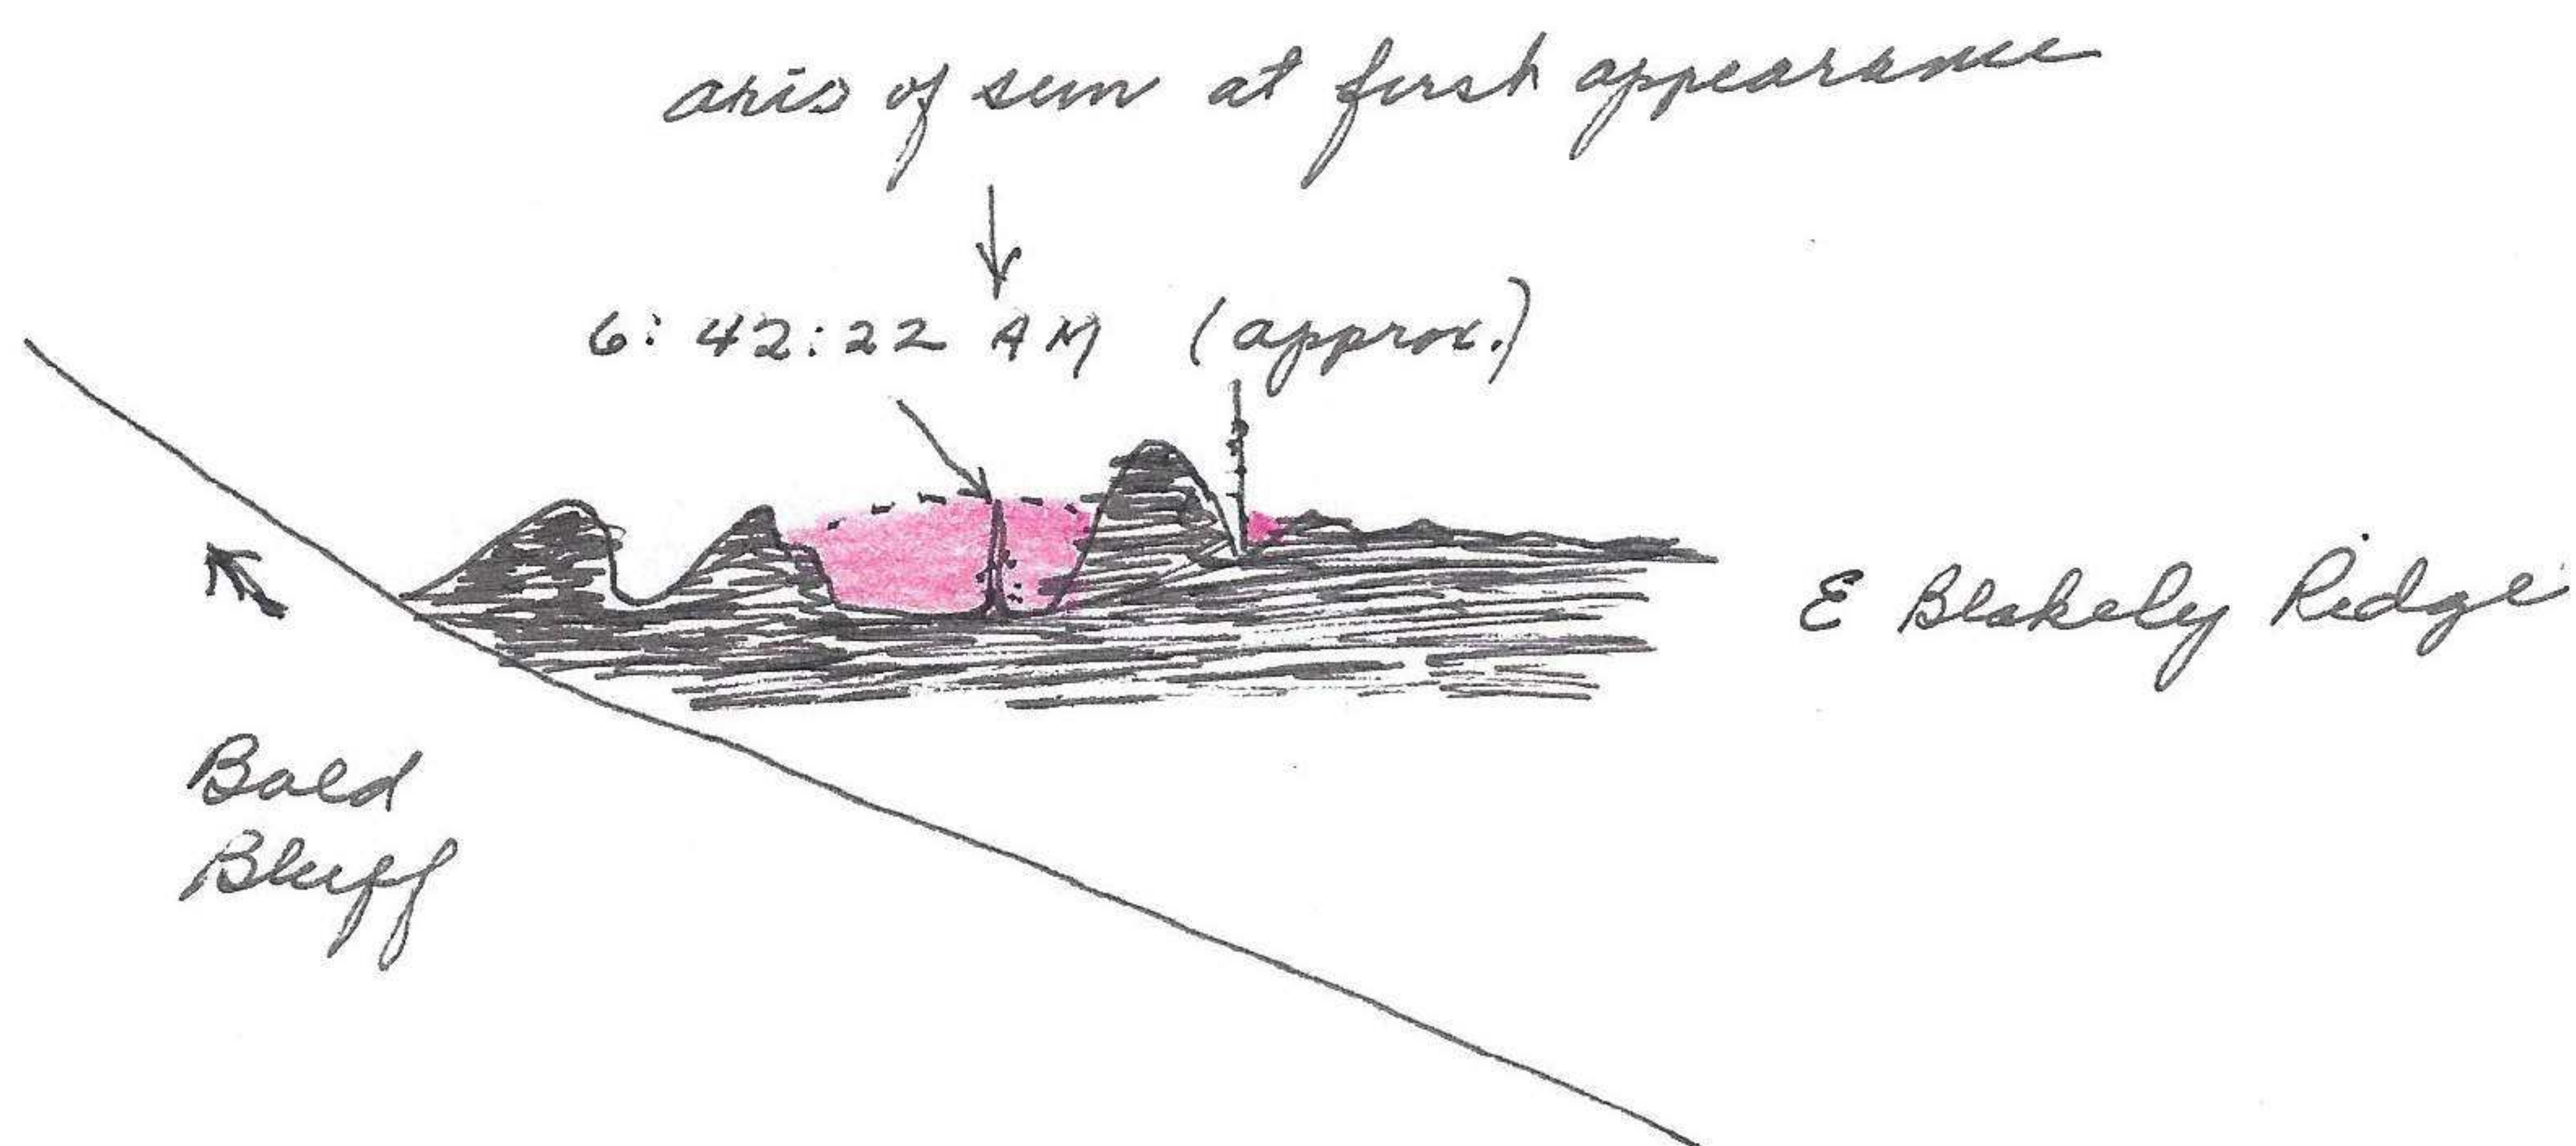 axis of sun at first appearance
6:42:22 AM (approx.)
E Blakely Ridge
Bald
Bluff